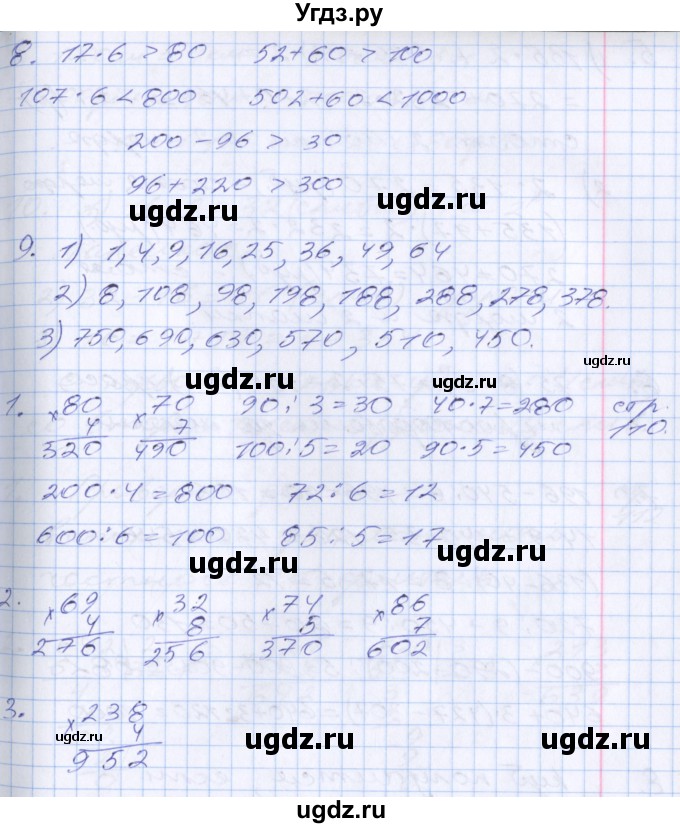 Угдз.ру
8. 17·6 > 80 52+60 > 100
107·6 < 800 502+60 < 1000
200-96 > 30
96+220 > 300
ugdz.ru ugdz.ru
9. 1) 1, 4, 9, 16, 25, 36, 49, 64
2) 8, 108, 98, 198, 188, 288, 278, 378.
3) 750, 690, 630, 570, 510, 450.
ugdz.ru
ugdz.ru ugdz.ru
1. ×80 ×70 90:3=30 40·7=280 стр.
4 7 110.
520 490 100:5=20 90·5=450
200·4=800 72:6=12
600:6=100 85:5=17
ugdz.ru ugdz.ru
2. ×69 ×32 ×74 ×86
4 8 5 7
276 256 370 602
3. ×238
4
952
ugdz.ru ugdz.ru ugdz.ru
ugdz.ru